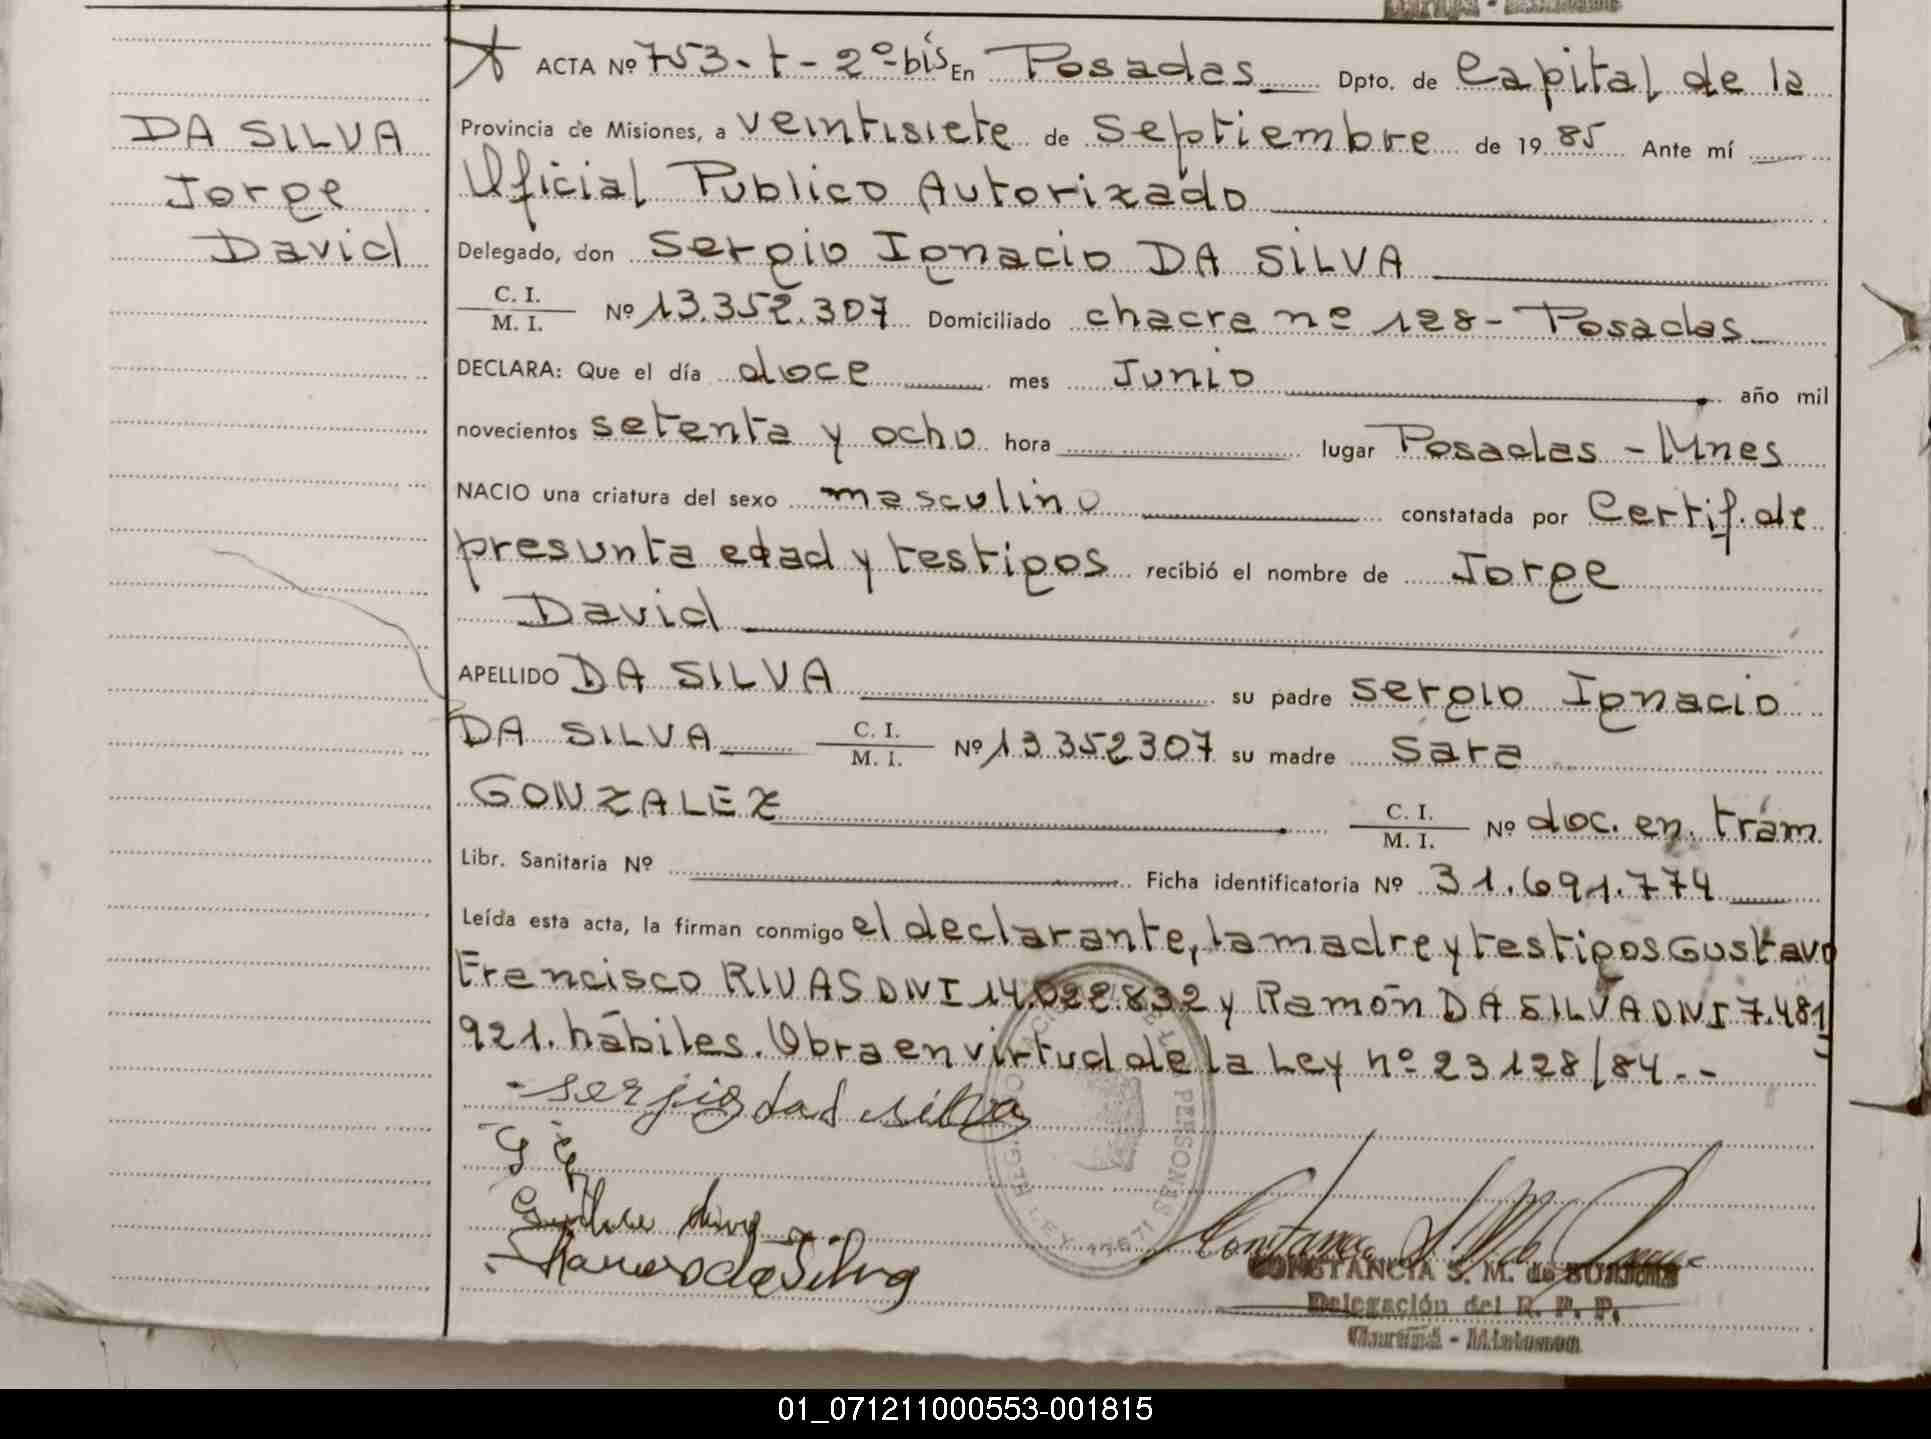 DA SILVA
Jorge
David
ACTA Nº 753-t-2º-bis En Posadas Dpto. de Capital de la
Provincia de Misiones, a veintisiete de septiembre de 19 85 Ante mí
Oficial Publico Autorizado
Delegado, don Sergio Ignacio DA SILVA
C. I.
M. I. Nº 13.352.307 Domiciliado chacra nº 128- Posadas
DECLARA: Que el día doce mes Junio año mil
novecientos setenta y ocho hora lugar Posadas - Mnes
NACIO una criatura del sexo masculino constatada por Certif. de
presunta edad y testigos recibió el nombre de Jorge
David
APELLIDO DA SILVA su padre Sergio Ignacio
DA SILVA C. I. M. I. Nº 13352307 su madre Sara
GONZALEZ C. I. M. I. Nº doc. en. trám.
Libr. Sanitaria Nº Ficha identificatoria Nº 31.691.774
Leída esta acta, la firman conmigo el declarante, la madre y testigos Gustavo
Francisco RIVAS DNI 14.022.832 y Ramón DA SILVA DNI 7.481
921. hábiles. Obra en virtud de la Ley nº 23128/84.--
sergio da silva
CONSTANCIA S. M. de
Delegación del R. P. P.
01_071211000553-001815